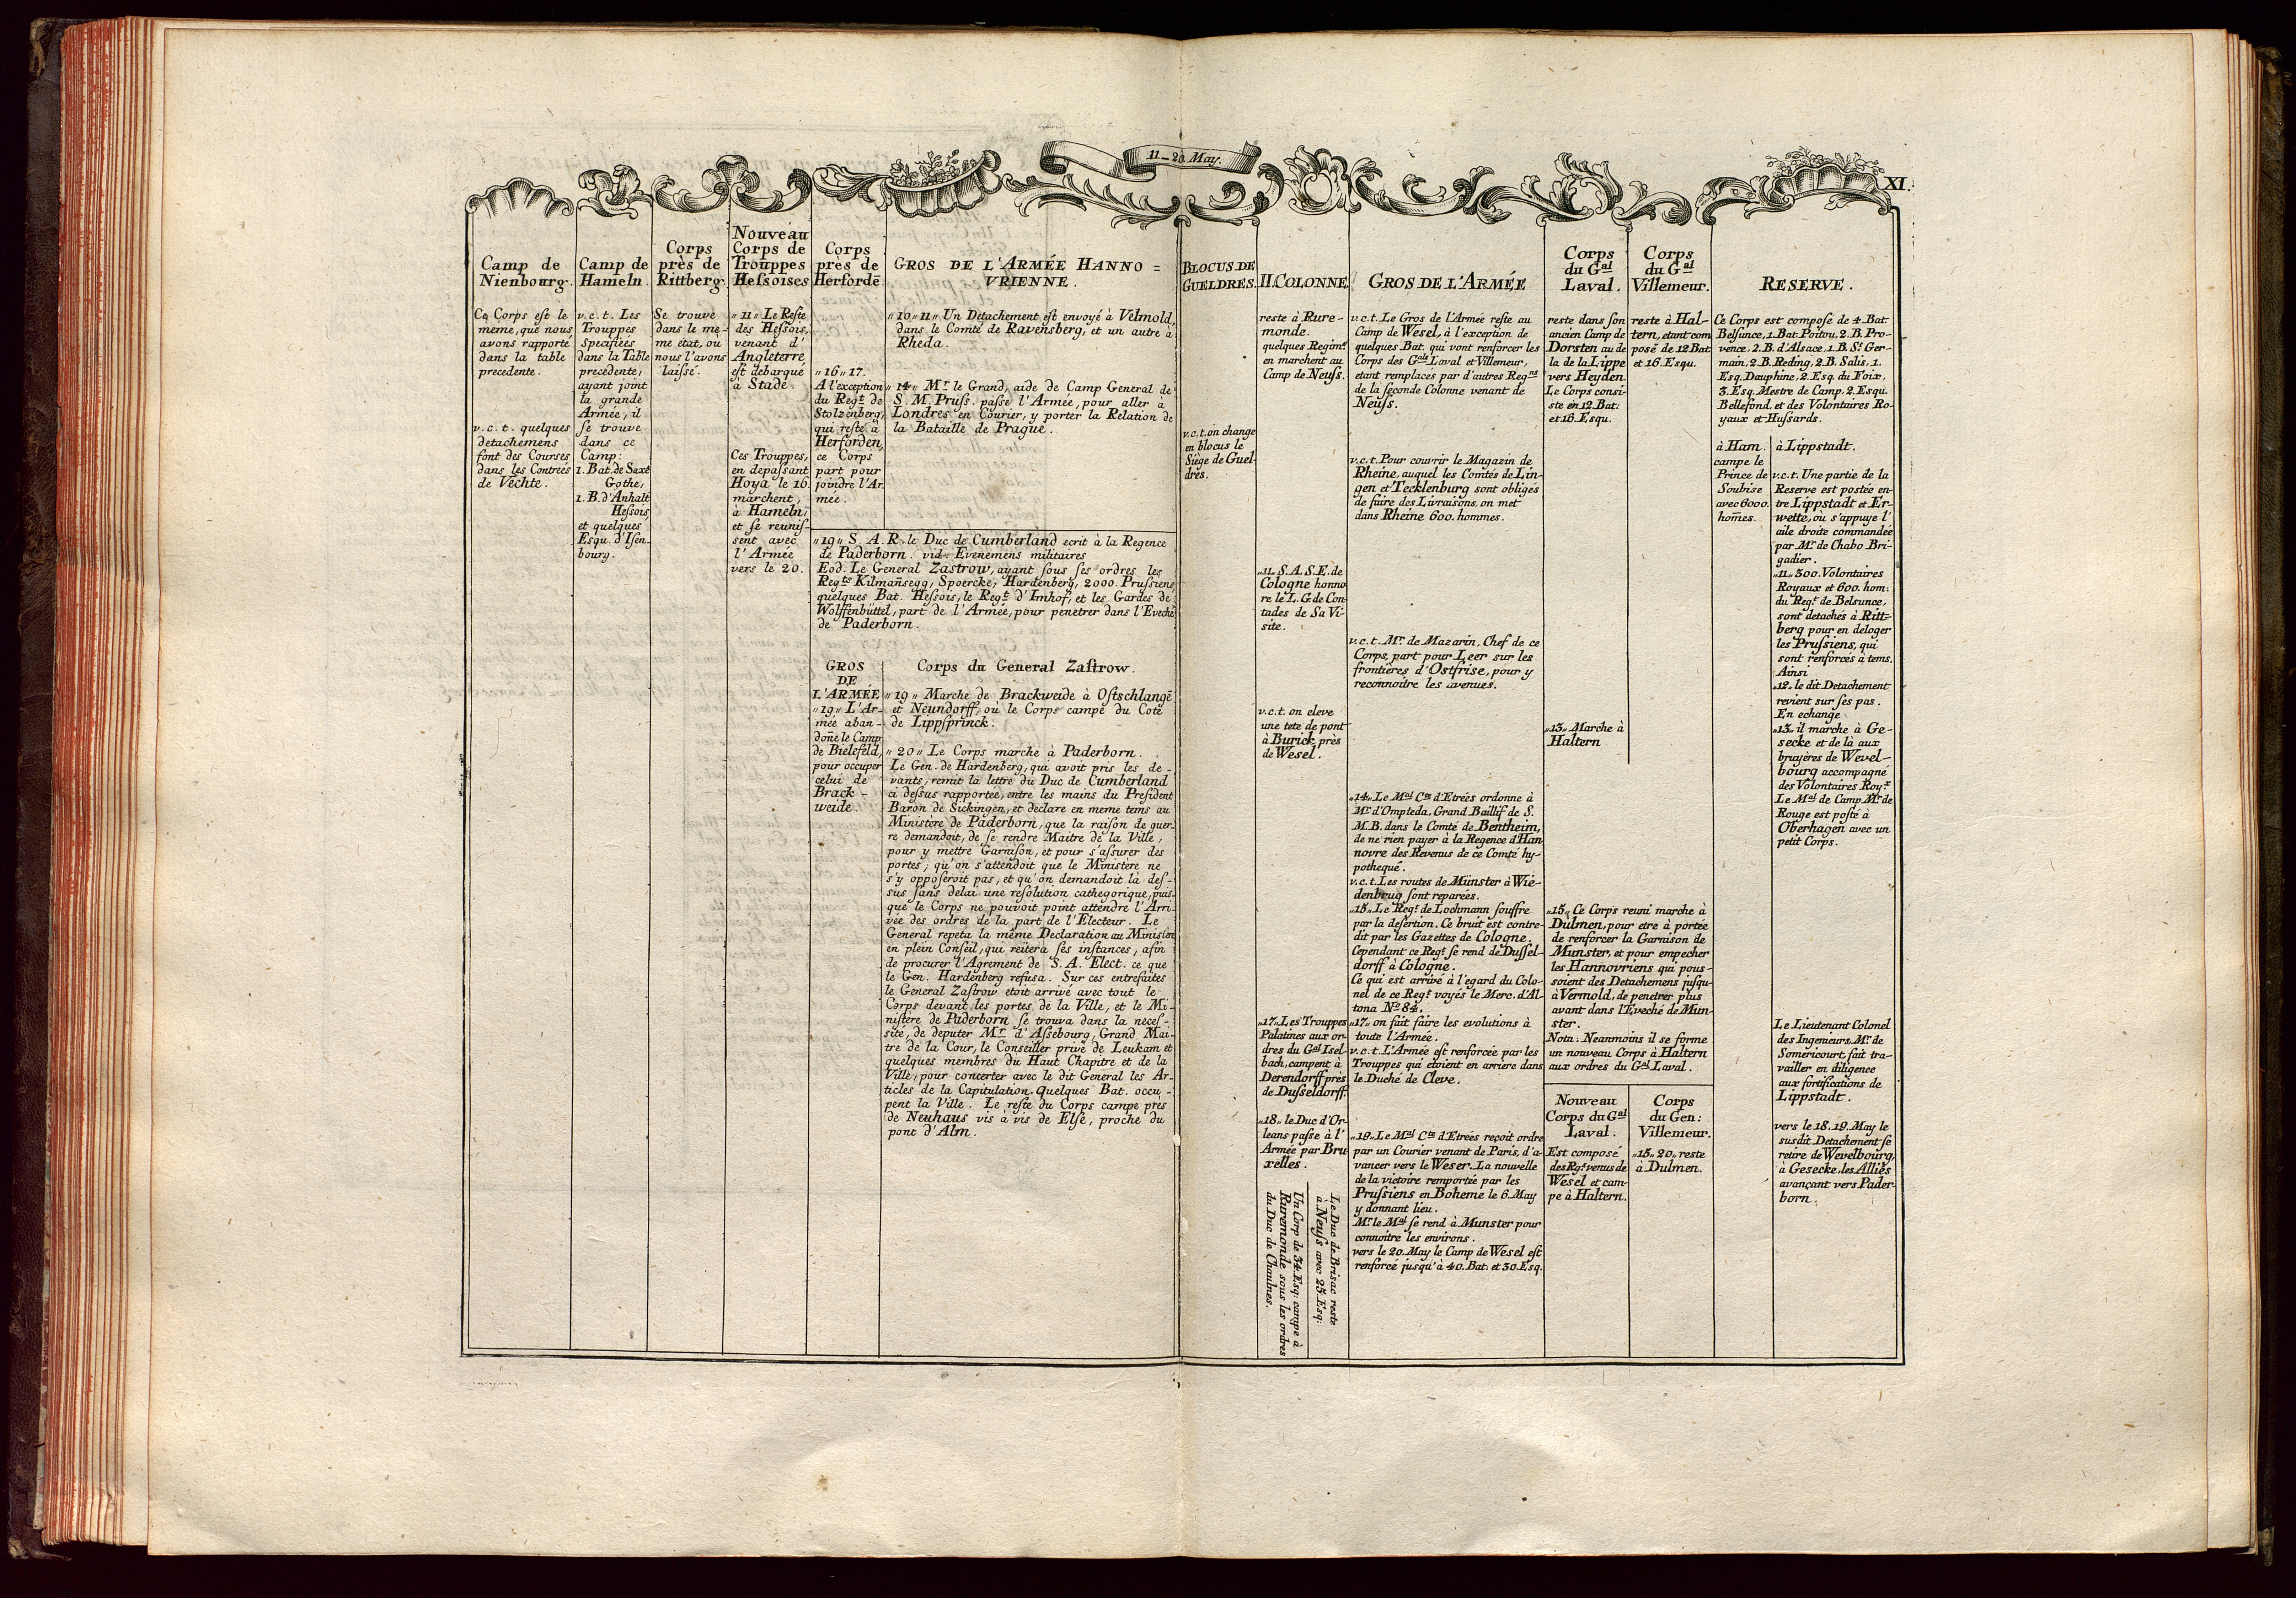 11–20 May.
XI.
Camp de
Nienbourg.
Ce Corps est le
meme, que nous
avons rapporté
dans la table
precedente.
v.c.t. quelques
detachemens
font des Courses
dans les Contrées
de Vechte.
Camp de
Hameln.
v.c.t. Les
Trouppes
specifiées
dans la Table
precedente,
ayant joint
la grande
Armée, il
se trouve
dans ce
Camp:
1. Bat. de Saxe
Gothe,
1. B. d'Anhalt
Hessois,
et quelques
Esqu. d'Isen-
bourg.
Corps
près de
Rittberg.
Se trouve
dans le me-
me état, ou
nous l'avons
laissé.
Nouveau
Corps de
Trouppes
Hessoises
„11„ Le Reste
des Hessois,
venant d'
Angleterre
est debarqué
à Stade.
Ces Trouppes,
en depassant
Hoya le 16
marchent,
à Hameln,
et se reunis-
sent avec
l'Armée
vers le 20.
Corps
près de
Herfordē.
„16„17.
A l'exception
du Regt. de
Stolzenberg,
qui reste à
Herforden,
ce Corps
part pour
joindre l'Ar-
mée.
GROS DE L'ARMÉE HANNO=
VRIENNE.
„10„11„ Un Detachement est envoyé à Velmold,
dans le Comté de Ravensberg, et un autre à
Rheda.
„14„ Mr. le Grand, aide de Camp General de
S. M. Pruss. passe l'Armée, pour aller à
Londres en Courier, y porter la Relation de
la Bataille de Prague.
„19„ S. A. R. le Duc de Cumberland ecrit à la Regence
de Paderborn. vid. Evenemens militaires
Eod. Le General Zastrow, ayant sous ses ordres les
Regts. Kilmañsegg, Spoercke, Hardenberg, 2000. Prussiens,
quelques Bat. Hessois, le Regt. d'Imhof, et les Gardes de
Wolffenbüttel, part de l'Armée, pour penetrer dans l'Eveché
de Paderborn.
GROS
DE
L'ARMÉE
„19„ L'Ar-
mée aban-
doñe le Camp
de Bielefeld,
pour occuper
celui de
Brack-
weide.
Corps du General Zastrow.
„19„ Marche de Brackweide à Ostschlangē
et Neundorff, où le Corps campe du Coté
de Lippsprinck.
„20„ Le Corps marche à Paderborn.
Le Gen. de Hardenberg, qui avoit pris les de-
vants, remit la lettre du Duc de Cumberland
ci dessus rapportée, entre les mains du President
Baron de Sickingen, et declare en meme tems au
Ministère de Paderborn, que la raison de guer-
re demandoit, de se rendre Maitre de la Ville,
pour y mettre Garnison, et pour s'assurer des
portes; qu'on s'attendoit que le Ministère ne
s'y opposeroit pas, et qu'on demandoit là des-
sus sans delai une resolution cathegorique, puis-
que le Corps ne pouvoit point attendre l'Arri-
vée des ordres de la part de l'Electeur. Le
General repeta la même Declaration au Ministère
en plein Conseil, qui reïtera ses instances, afin
de procurer l'Agrement de S. A. Elect. ce que
le Gen. Hardenberg refusa. Sur ces entrefaites
le General Zastrow etoit arrivé avec tout le
Corps devant les portes de la Ville, et le Mi-
nistère de Paderborn se trouva dans la neces-
sité, de deputer Mr. d'Assebourg, Grand Mai-
tre de la Cour, le Conseiller privé de Leukam et
quelques membres du Haut Chapitre et de la
Ville, pour concerter avec le dit General les Ar-
ticles de la Capitulation. Quelques Bat. occu-
pent la Ville. Le reste du Corps campe près
de Neuhaus vis à vis de Else, proche du
pont d'Alm.
BLOCUS DE
GUELDRES.
v.c.t. on change
en blocus le
Siège de Guel-
dres.
II. COLONNE.
reste à Rure-
monde.
quelques Regimts.
en marchent au
Camp de Neuss.
„11. S. A. S. E. de
Cologne honno
re le L. G. de Con-
tades de Sa Vi-
site.
v.c.t. on eleve
une tete de pont
à Burick, près
de Wesel.
„17„ Les Trouppes
Palatines aux or-
dres du Gal. Isel-
bach, campent à
Derendorff près
de Dusseldorff.
„18„ le Duc d'Or-
leans passe à l'
Armée par Bru-
xelles.
Le Duc de Brisac reste
à Neuss avec 25. Esq:
Un Corp de 34. Esq: campe à
Ruremonde sous les ordres
du Duc de Chaulnes.
GROS DE L'ARMÉE
v.c.t. Le Gros de l'Armée reste au
Camp de Wesel, à l'exception de
quelques Bat. qui vont renforcer les
Corps des Gals. Laval et Villemeur,
etant remplacés par d'autres Regns
de la seconde Colonne venant de
Neüss.
v.c.t. Pour couvrir le Magazin de
Rheine, auquel les Comtés de Lin-
gen et Tecklenburg sont obligés
de faire des Livraisons, on met
dans Rheine 600. hommes.
v.c.t. Mr. de Mazarin, Chef de ce
Corps, part pour Leer sur les
frontières d'Ostfrise, pour y
reconnoitre les avenues.
„14„ Le Mal. Cte. d'Etrées ordonne à
Mr. d'Ompteda, Grand Baillif de S.
M. B. dans le Comté de Bentheim,
de ne rien payer à la Regence d'Han-
novre des Revenus de ce Comté hy-
pothequé.
v.c.t. Les routes de Münster à Wie-
denbrug sont reparées.
„15„ Le Regt. de Lochmann souffre
par la desertion. Ce bruit est contre-
dit par les Gazettes de Cologne.
Cependant ce Regt. se rend de Dussel-
dorff à Cologne.
Ce qui est arrivé à l'egard du Colo-
nel de ce Regt. voyés le Merc. d'Al-
tona No. 84.
„17„ on fait faire les evolutions à
toute l'Armée.
v.c.t. L'Armée est renforcée par les
Trouppes qui etoient en arriere dans
le Duché de Cleve.
„19„ Le Mal. Cte. d'Etrées reçoit ordre
par un Courier venant de Paris, d'a-
vancer vers le Weser. La nouvelle
de la victoire remportée par les
Prussiens en Boheme le 6. May
y donnant lieu.
Mr. le Mal. se rend à Munster pour
connoitre les environs.
vers le 20. May le Camp de Wesel est
renforcé jusqu'à 40. Bat. et 30. Esq.
Corps
du Gal.
Laval.
reste dans son
ancien Camp de
Dorsten au de
la de la Lippe
vers Heyden.
Le Corps consi-
ste en 12. Bat:
et 16. Esqu.
„13„ Marche à
Haltern
Corps
du Gal.
Villemeur.
reste à Hal-
tern, etant com
posé de 12 Bat
et 16. Esqu.
„15„ Ce Corps reuni marche à
Dülmen, pour etre à portée
de renforcer la Garnison de
Munster, et pour empecher
les Hannovriens qui pous-
soient des Detachemens jusqu'
à Vermold, de penetrer plus
avant dans l'Eveché de Mün-
ster.
Nota: Neanmoins il se forme
un nouveau Corps à Haltern
aux ordres du Gal. Laval.
Nouveau
Corps du Gal.
Laval.
Est composé
des Rgt. venus de
Wesel et cam-
pe à Haltern.
Corps
du Gen:
Villemeur.
„15„20„ reste
à Dulmen.
RESERVE.
Ce Corps est composé de 4. Bat
Belsunce, 1. Bat. Poitou, 2. B. Pro-
vence, 2. B. d'Alsace, 1. B. St. Ger-
main, 2. B. Reding, 2. B. Salis, 1.
Esq. Dauphine, 2. Esq. du Foix,
3. Esq. Mestre de Camp, 2. Esqu.
Bellefond, et des Volontaires Ro-
yaux et Hussards.
à Ham.
campe le
Prince de
Soubise
avec 6000.
hom̄es.
à Lippstadt.
v.c.t. Une partie de la
Reserve est postée en-
tre Lippstadt et Er-
wette, où s'appuye l'
aile droite commandée
par Mr. de Chabo Bri-
gadier.
„11„ 300. Volontaires
Royaux et 600. hom:
du Regt. de Belsunce,
sont detachés à Ritt-
berg pour en deloger
les Prussiens, qui
sont renforcés à tems.
Ainsi
„12„ le dit Detachement
revient sur ses pas.
En echange
„13„ il marche à Ge-
secke et de là aux
bruyères de Wevel-
bourg accompagné
des Volontaires Roy.s
Le Mal. de Camp Mr. de
Rouge est posté à
Oberhagen avec un
petit Corps.
Le Lieutenant Colonel
des Ingenieurs Mr. de
Somericourt, fait tra-
vailler en diligence
aux fortifications de
Lippstadt.
vers le 18. 19. May le
susdit Detachement se
retire de Wevelbourg,
à Gesecke, les Alliés
avançant vers Pader-
born.